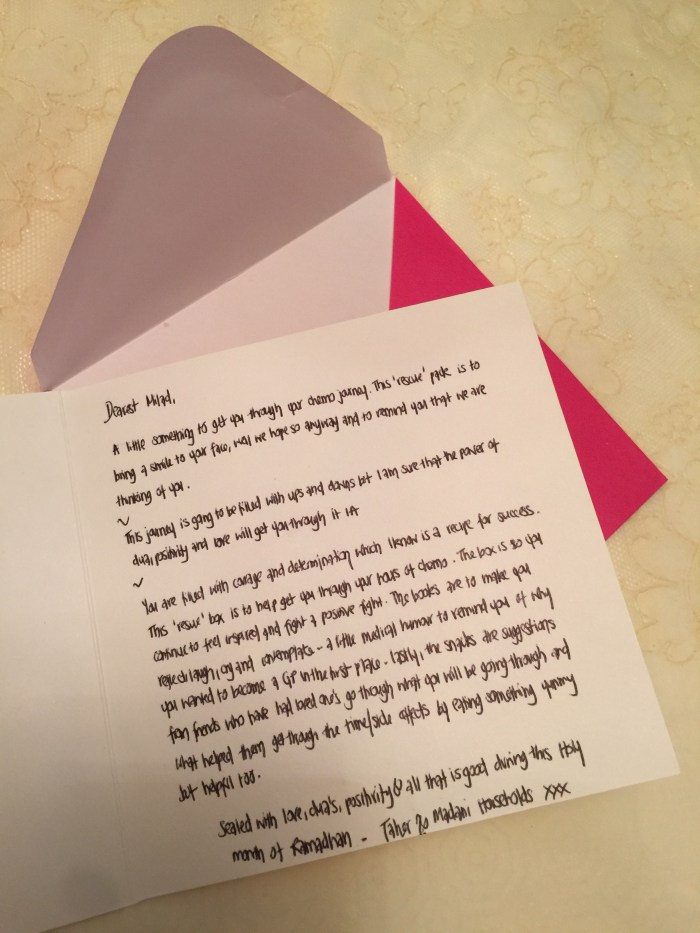 Dearest Milad,
A little something to get you through your chemo journey. This 'rescue' pack is to
bring a smile to your face, well we hope so anyway and to remind you that we are
thinking of you.
This journey is going to be filled with ups and downs but I am sure that the power of
duas, positivity and love will get you through it IA
You are filled with courage and determination which I know is a recipe for success.
This 'rescue' box is to help get you through your hours of chemo. The box is so you
continue to feel inspired and fight a positive fight. The books are to make you
reflect, laugh, cry and contemplate - a little medical humour to remind you of why
you wanted to become a GP in the first place. Lastly, the snacks are suggestions
from friends who have had loved one's go through what you will be going through and
what helped them get through the time/side effects by eating something yummy
but helpful too.
Sealed with love, dua's, positivity & all that is good during this Holy
month of Ramadhan - Taher Madani Households xxx